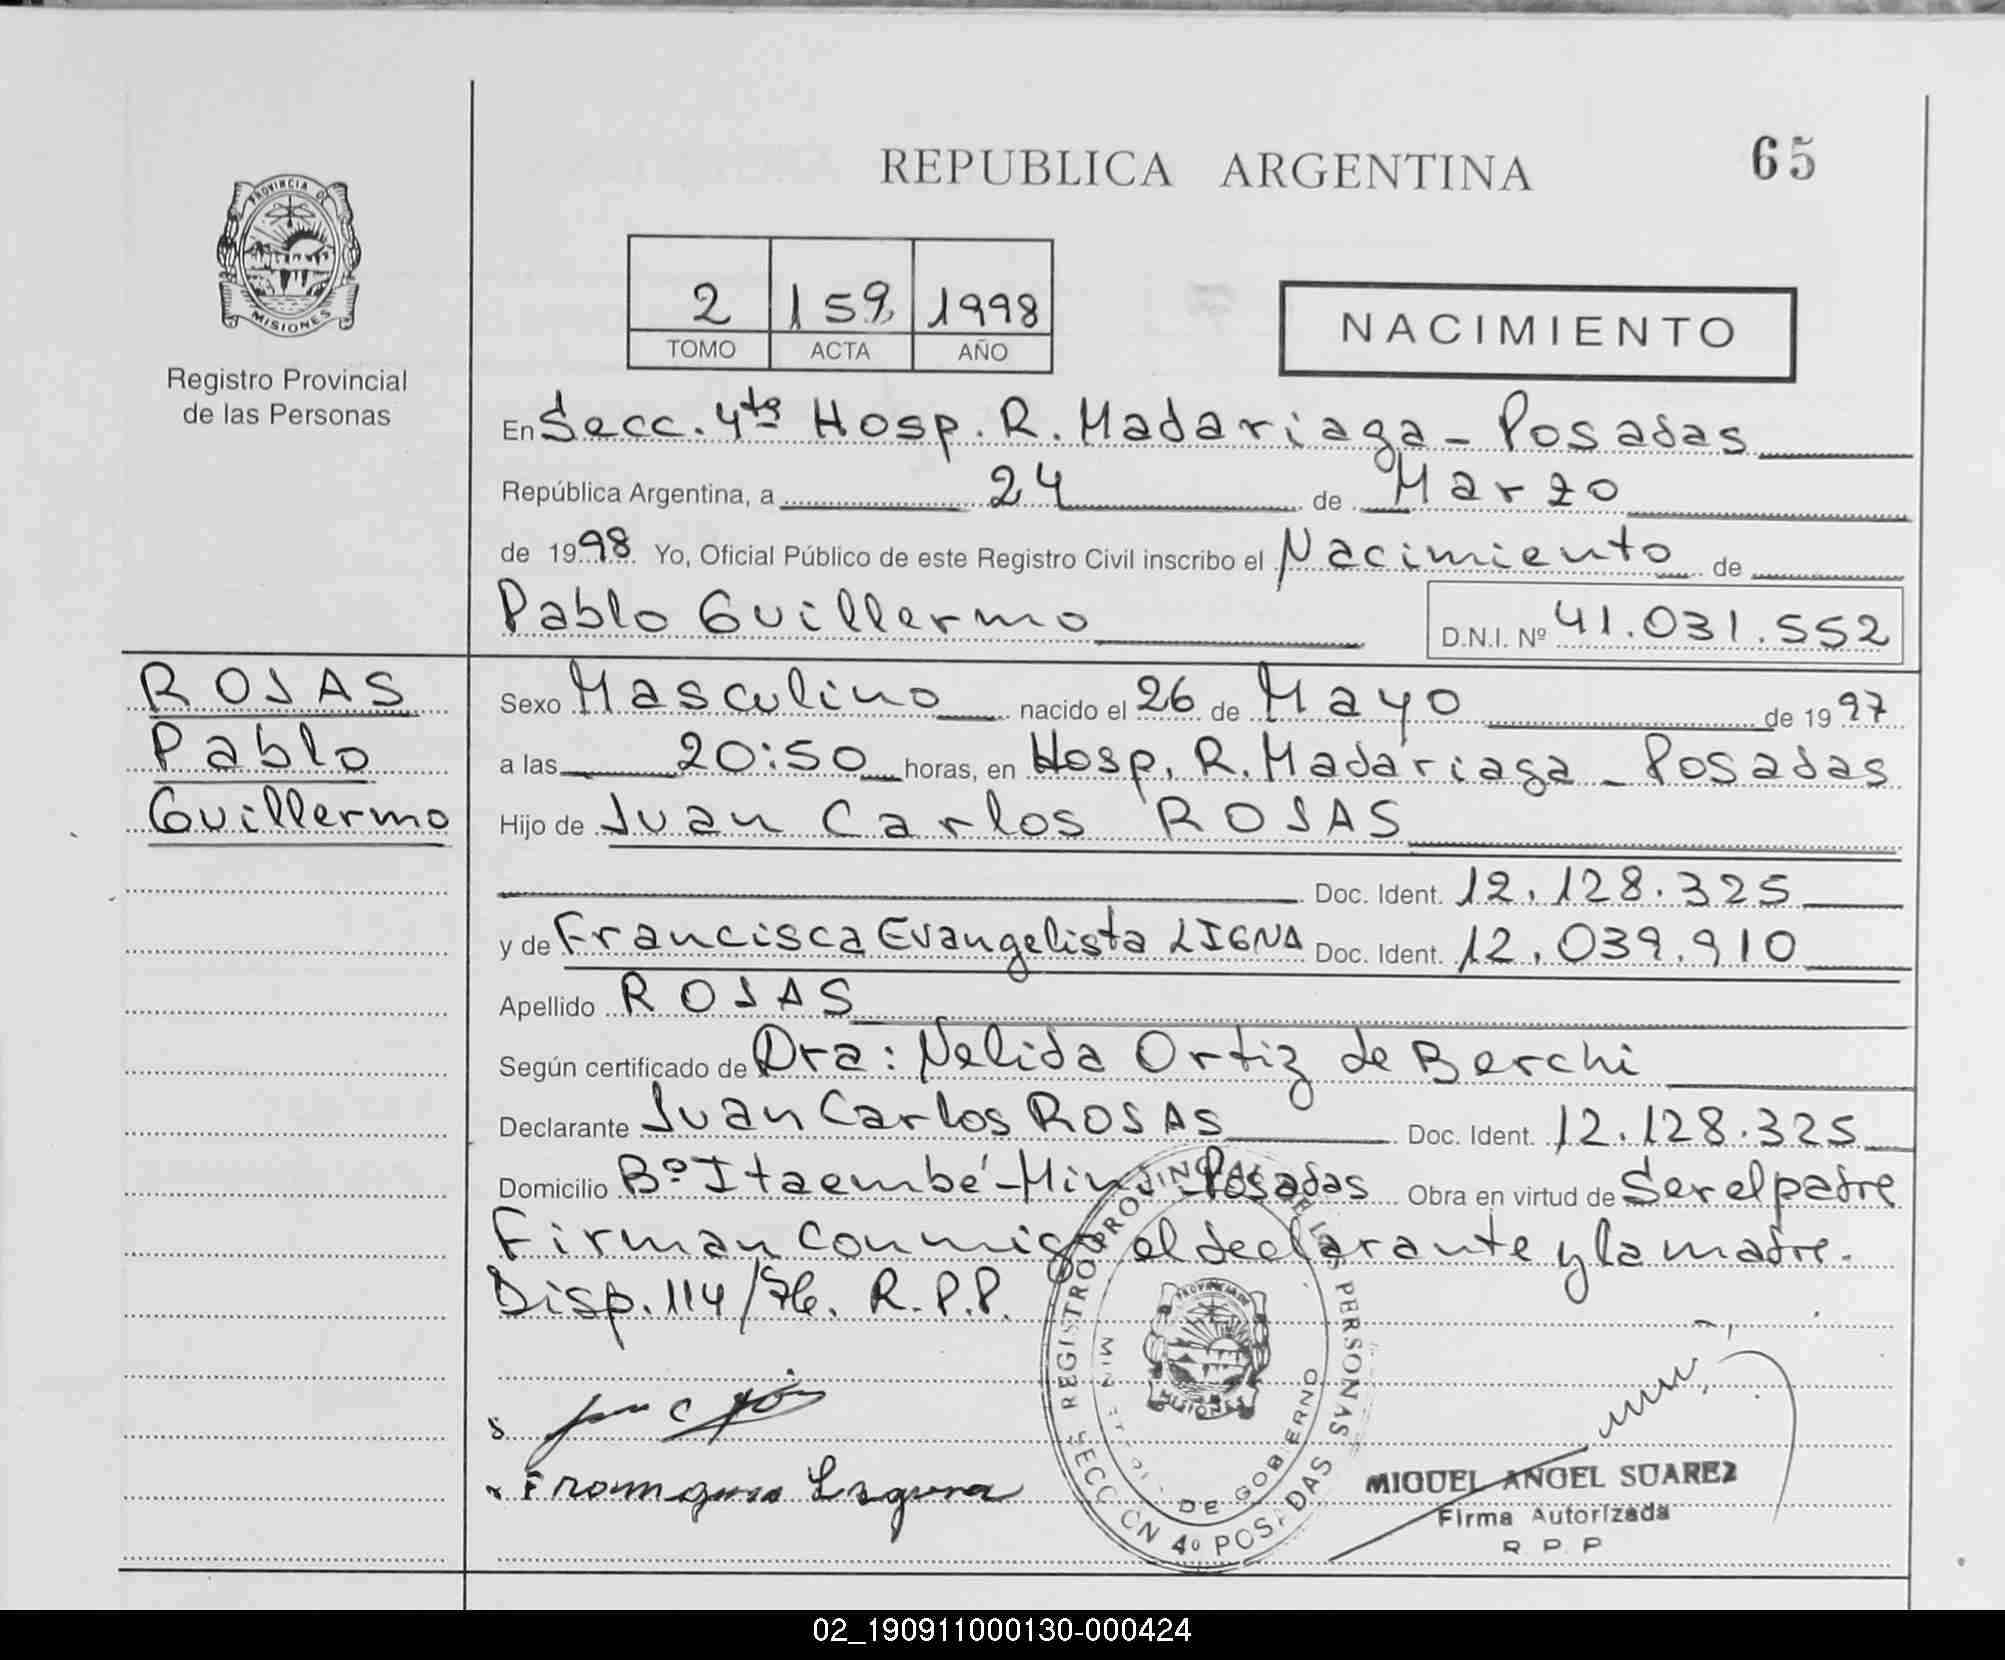 PROVINCIA DE
MISIONES
Registro Provincial
de las Personas
REPUBLICA ARGENTINA
65
2 159 1998
TOMO ACTA AÑO
NACIMIENTO
En Secc. 4ta Hosp. R. Madariaga - Posadas
República Argentina, a 24 de Marzo
de 1998 Yo, Oficial Público de este Registro Civil inscribo el Nacimiento de
Pablo Guillermo D.N.I. Nº 41.031.552
ROJAS
Pablo
Guillermo
Sexo Masculino nacido el 26 de Mayo de 1997
a las 20:50 horas, en Hosp. R. Madariaga - Posadas
Hijo de Juan Carlos ROJAS
Doc. Ident. 12.128.325
y de Francisca Evangelista LIGNA Doc. Ident. 12.039.910
Apellido ROJAS
Según certificado de Dra: Nelida Ortiz de Berchi
Declarante Juan Carlos ROJAS Doc. Ident. 12.128.325
Domicilio Bº Itaembé-Miní-Posadas Obra en virtud de Ser el padre
Firman conmigo el declarante y la madre.
Disp. 114/76. R.P.P.
REGISTRO PROVINCIAL DE LAS PERSONAS
SECCION 4º POSADAS
MINISTERIO DE GOBIERNO
PROVINCIA DE
MISIONES
MIGUEL ANGEL SUAREZ
Firma Autorizada
R P P
02_190911000130-000424